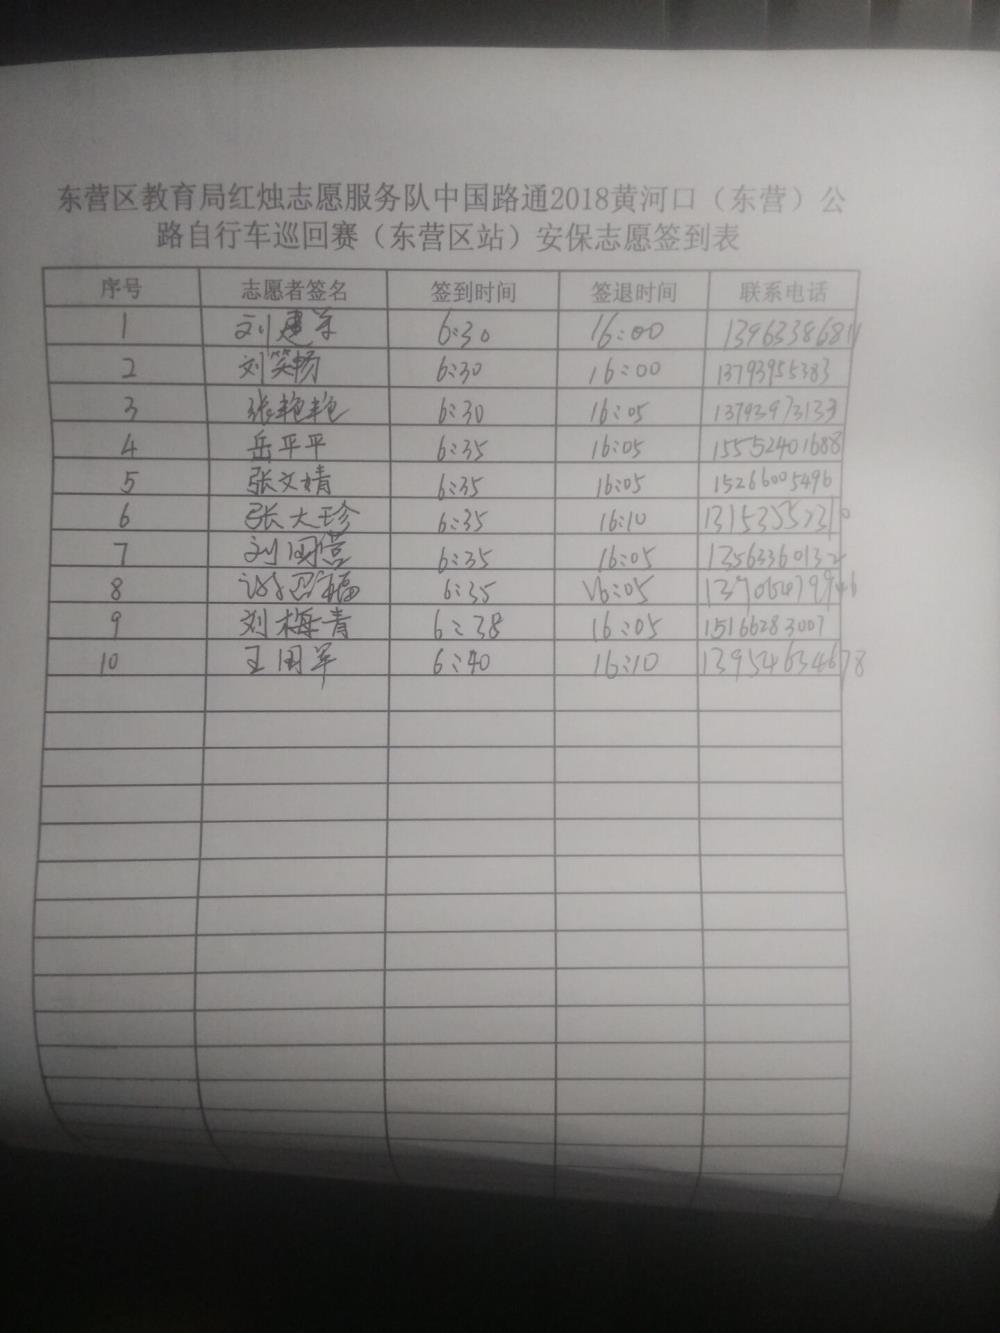 东营区教育局红烛志愿服务队中国路通2018黄河口（东营）公
路自行车巡回赛（东营区站）安保志愿签到表
序号 志愿者签名 签到时间 签退时间 联系电话
1 刘建军 6:30 16:00
2 刘笑畅 6:30 16:00 13793955383
3 张艳艳 6:30 16:05 13793973133
4 岳平平 6:35 16:05 15552401688
5 张文婧 6:35 16:05 15266005496
6 张大珍 6:35 16:10
7 刘国营 6:35 16:05 13563360132
8 6:35 16:05
9 刘梅青 6:38 16:05 15166283007
10 王国军 6:40 16:10 13954634678